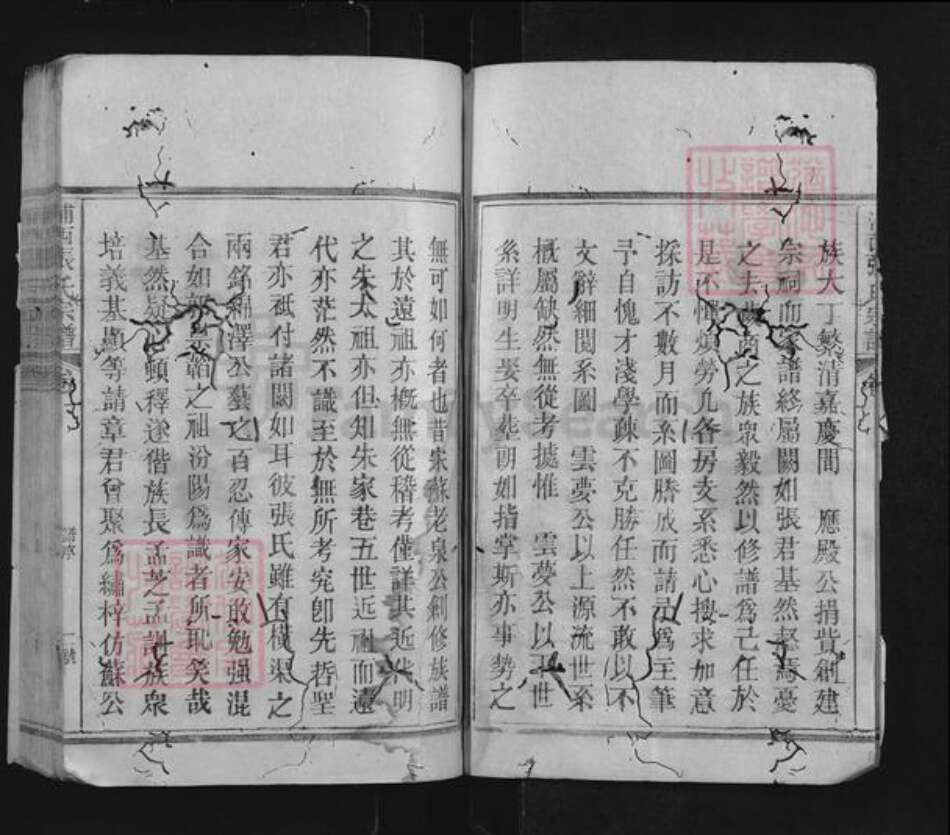 族大丁繁清嘉慶間 應殿公捐貲創建
宗祠而家譜終屬闕如張君基然惄焉憂
之去歲商之族眾毅然以修譜爲己任於
是不憚煩勞凡各房支系悉心搜求加意
採訪不數月而系圖謄成而請予爲主筆
予自愧才淺學疎不克勝任然不敢以不
文辭細閱系圖 雲夢公以上源流世系
概屬缺然無從考據惟 雲夢公以下世
系詳明生娶卒塟朗如指掌斯亦事勢之
無可如何者也昔宋蘇老泉公創修族譜
其於遠祖亦概無從稽考僅詳其近代明
之朱太祖亦但知朱家巷五世近祖而遠
代亦茫然不識至於無所考究卽先哲聖
君亦祇付諸闕如耳彼張氏雖有橫渠之
兩銘 澤公藝之百忍傳家安敢勉强混
合如郭崇韜之祖汾陽爲識者所恥笑哉
基然疑 頓釋遂偕族長孟芝孟訓族眾
培義基顯等請章君曾聚爲繡梓仿蘇公
浦西張氏宗譜
譜序